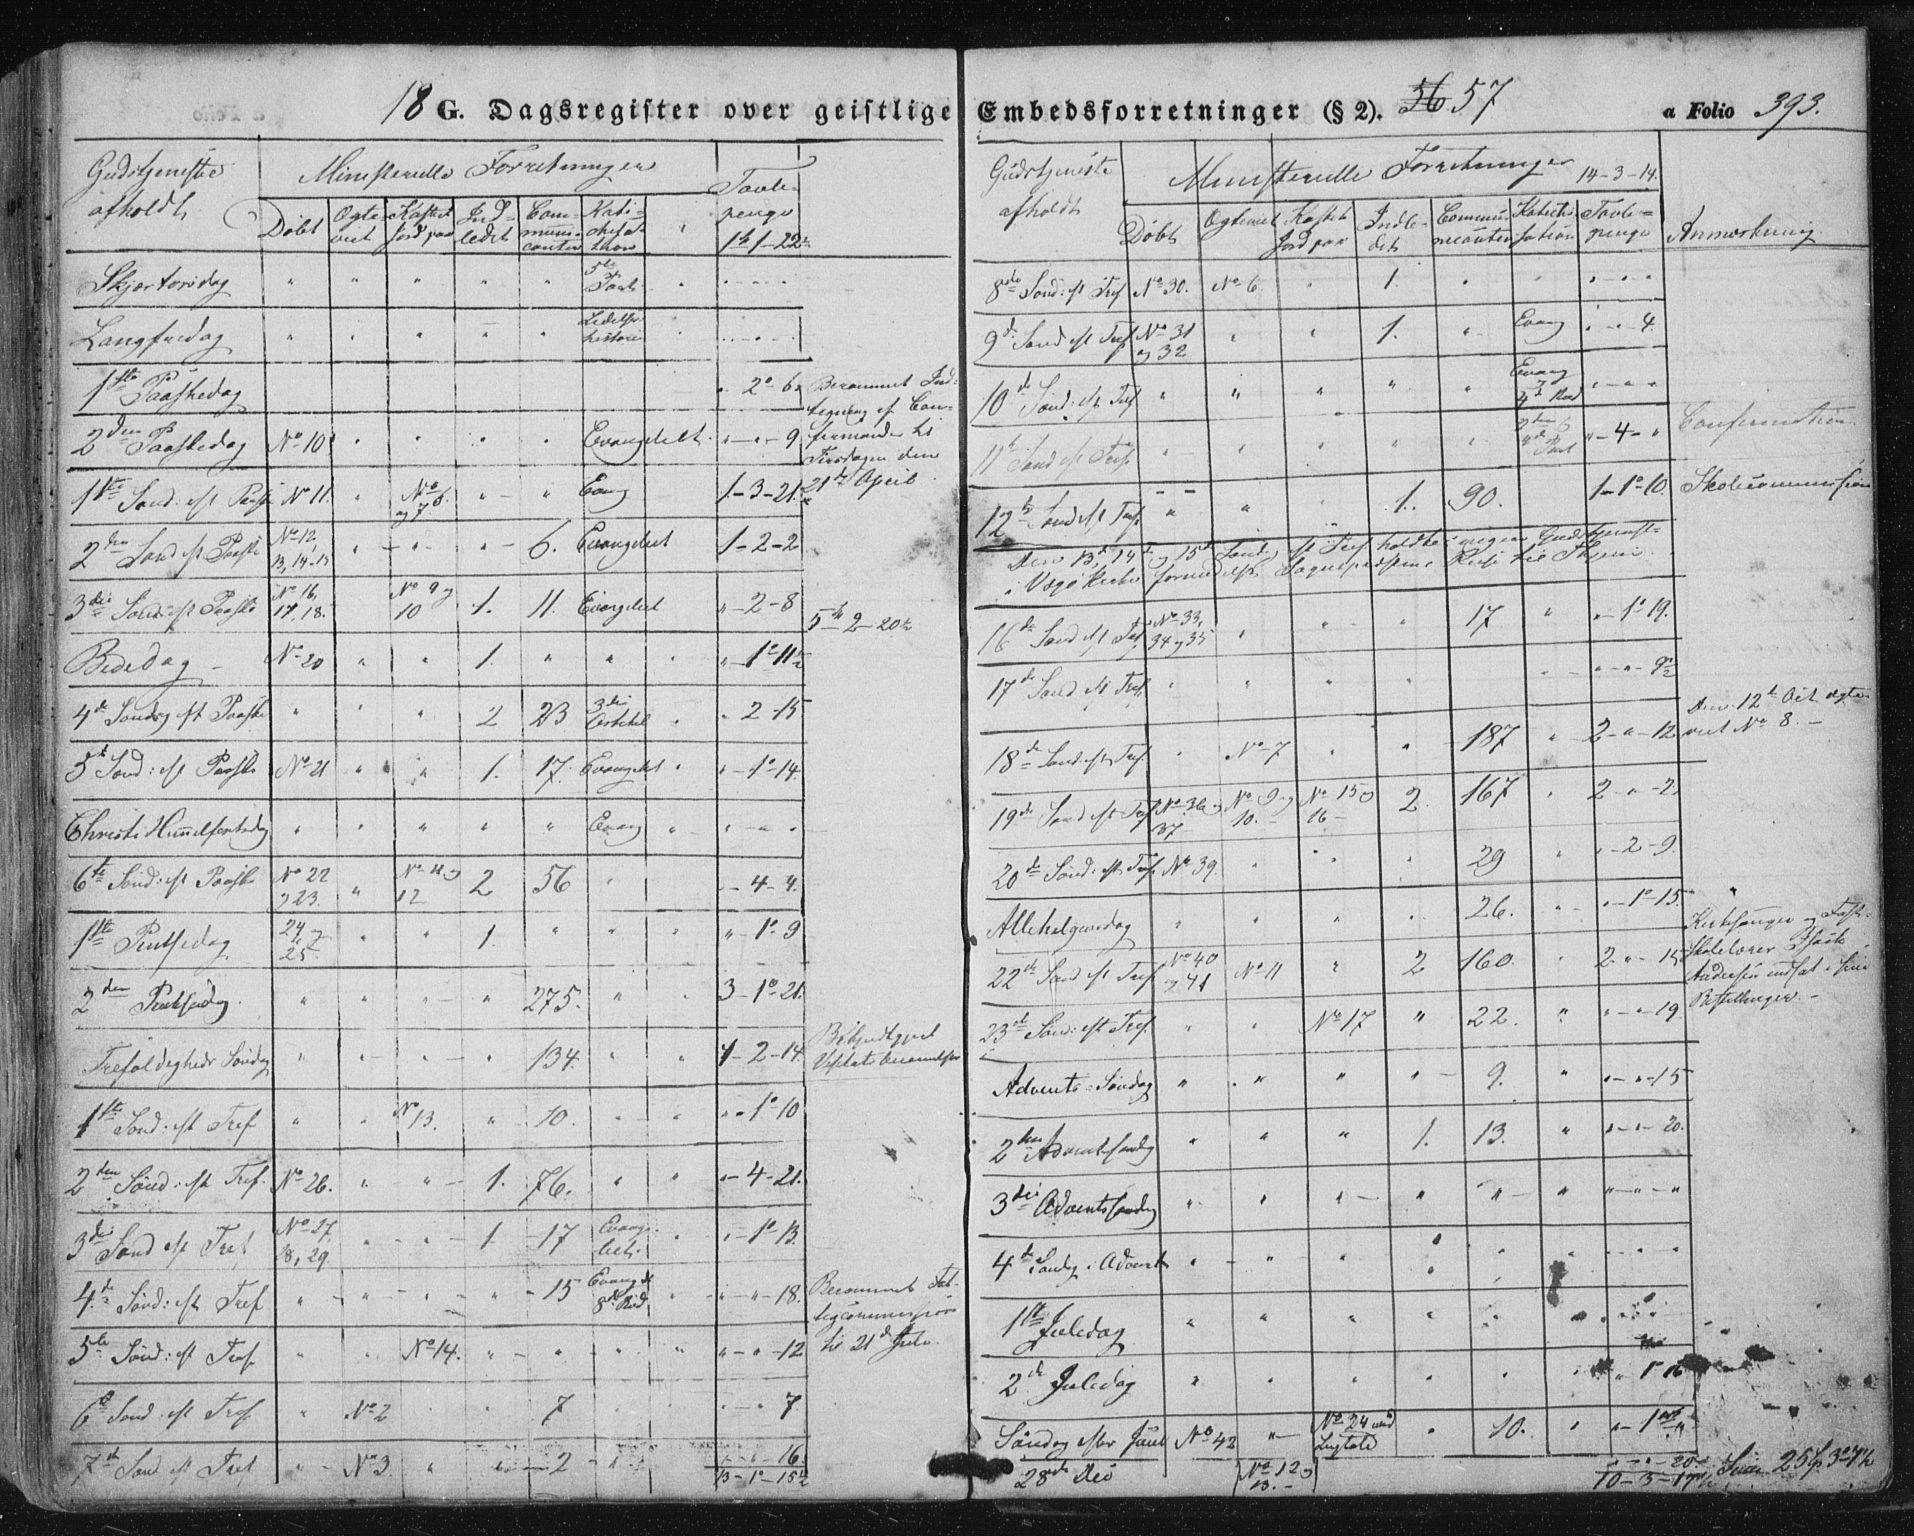 18 G. Dagsregister over geistlige Embedsforretninger (§ 2). 56 57 a Folio 393.
Gudstjeniste afholdt Ministerielle Forretninger Tavlepenge
Døbt Ogteviet Kastet Jord paa Indledet Communicanter
1-1-22
Skjærtorsdag " " " " "
Langfredag " " " " " Lidelses historie
1ste Paaskedag " 2-6
2den Paaskedag No 10 " " " " Evangeliet " - " - 9
1ste Sønd: eft Paaske No 11. " No 6 og 7 " " Evang 1-3-21
2den Sønd eft Paaske No 12, 13, 14, 15 " " " 6. Evangeliet 1-2-2
3die Sønd: eft Paaske No 16, 17, 18. No 9 og 10 1. 11. Evangeliet " - 2-8
Bededag No 20 " " 1. " " " " - 1-11
4de Søndag eft Paaske " " " 2 23 3die Artikel " 2-15
5te Sønd: eft Paaske No 21 " " 1. 17. Evangeliet " " - 1-14
Christi Himmelfartsdag " " " " " Evang " " - " - "
6te Sønd: eft Paaske No 22 og 23. " 12 2 56 " " - 4-4.
1ste Pintsedag 24 og 25 " " 1. " " " " - 1-9
2den Pintsedag " " " " 275. " " 3-1-21.
Trefoldigheds Søndag " " " " 134. " " 1-2-14
1ste Sønd: eft Tref " " No 13. " 10. " " " - 1-10
2den Sønd: eft Tref. No 26. " " 1. 76. " " " - 4-21.
3die Sønd eft Tref No 27, 28, 29. " " 1. 17 Evangeliet " - 1-13.
4de Sønd: eft Tref " " " " 15 Evang 8de Bud " - " - 18.
5te Sønd: eft Tref " " No 14. " " " " " - " - 12
6te Sønd: eft Tref. " No 2 " " 7 " - " - 7
7de Sønd eft Tref " No 3. " 2 " " - " - 16.
13-1-15
Berammet Ind-
tegning af Con-
firmander til
Tirsdagen den
21de April.
5-2-20
Bekjendtgjort
Visitats berammelse
Berammet Fat-
tigcommission
til 21de Juli.
Gudstjeniste afholdt Ministerielle Forretninger 14-3-14.
Døbt Ogteviet Kastet Jord paa Indledet Communicanter Katechisation Tavlepenge Anmærkning
8de Sønd: eft Tref No 30. No 6. " 1. " " " " "
9de Sønd eft Tref No 31 og 32 " " 1. " Evang " - " - 4.
10de Sønd: eft Tref " " " " " Evang 4de Bud " - " - "
11te Sønd eft Tref. " " " " " " - 4 - " Confirmation
12te Sønd eft Tref " " " 1. 90. 1-1-10. Skolecommission
Den 13de, 14de og 15de Søndag eft Tref holdtes ingen Gudstjeneste
i Vaagø Kirke formedelst Sognepræstens Reise til
16de Sønd eft Tref No 33, 34 og 35 " " " 17 " " - 1-19.
17de Sønd eft Tref. " " " " " - " - 9
18de Sønd eft Tref. " No 7 " " 187 " 2 - " - 12
Den 12te Oct ægte-
viet No 8. -
19de Sønd eft Tref No 36 og 37 No 9 og 10. No 15 og 16 2 167 " 2 - " - 2
20de Sønd: eft Tref No 39. " " " 29 " " - 2-9.
Allehelgensdag " " " " 26. " " - 1-15.
22de Sønd eft Tref No 40 og 41 No 11 " 2 160. " 2 - " - 15
Kirkesanger og Fast-
Skolelærer Isak
Andersen indsat i sine
Bestillinger. -
23de Sønd: eft Tref. " " No 17 " 22. " " - " - 19
Advents-Søndag " " " " 9. " " - " - 15
2den Adventsøndag " " " 1. 13. " " - " - 20.
3die Adventssøndag " " " " " " " - " - "
4de Søndag i Advent " " " " " " " "
1ste Juledag " " " " " "
2den Juledag " " " " " " 1-16
Søndag efter Juul No 42 " No 24 " 10. " " - 1
28de Dec No 12 og 13. - " - " - 20
Summa 25